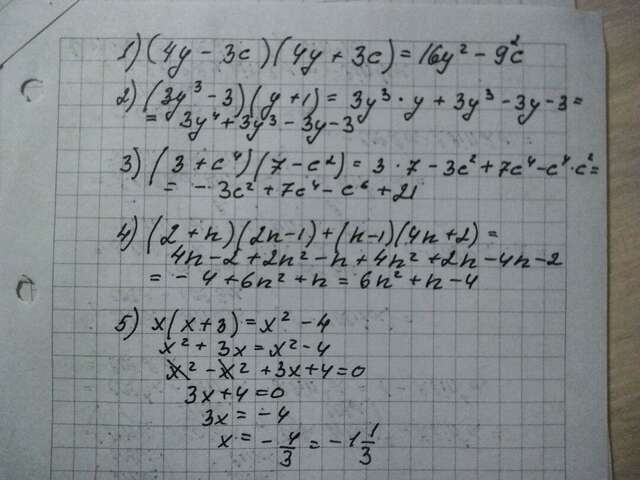 1) (4y - 3c)(4y + 3c) = 16y² - 9c²
2) (3y³ - 3)(y + 1) = 3y³ · y + 3y³ - 3y - 3 =
= 3y⁴ + 3y³ - 3y - 3
3) (3 + c⁴)(7 - c²) = 3 · 7 - 3c² + 7c⁴ - c⁴ · c² =
= - 3c² + 7c⁴ - c⁶ + 21
4) (2 + n)(2n - 1) + (n - 1)(4n + 2) =
4n - 2 + 2n² - n + 4n² + 2n - 4n - 2
= - 4 + 6n² + n = 6n² + n - 4
5) x(x + 3) = x² - 4
x² + 3x = x² - 4
x² - x² + 3x + 4 = 0
3x + 4 = 0
3x = - 4
x = - 4/3 = - 1 1/3